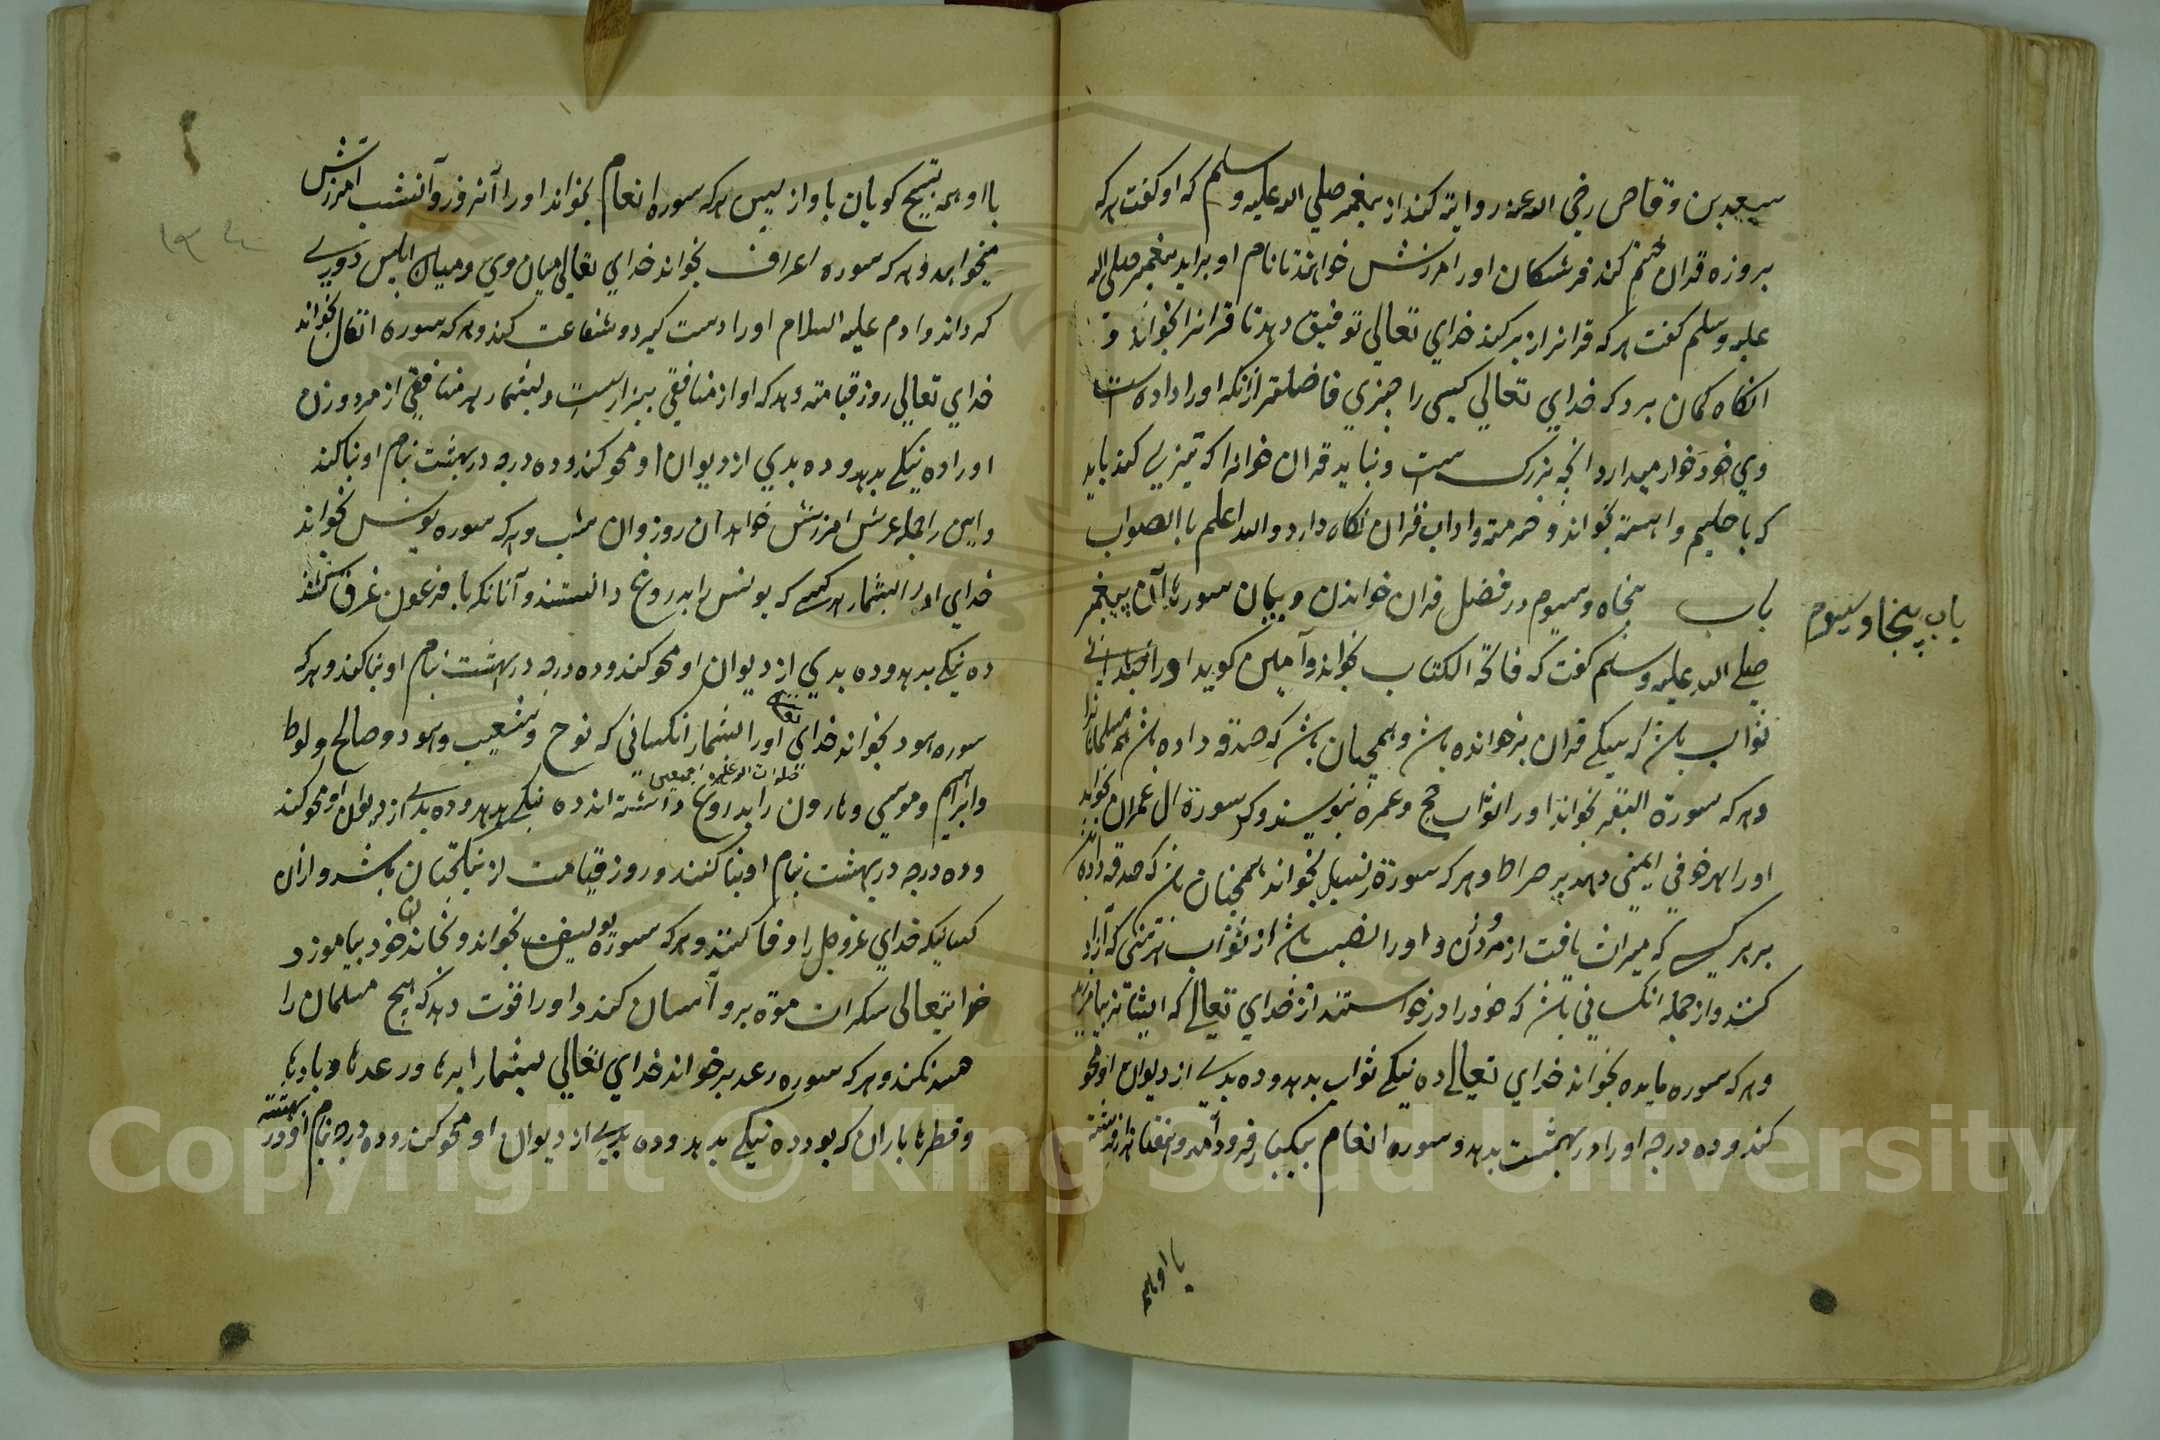 سعد بن وقاص رضي الله عنه روایة کند از پیغمبر صلي الله علیه وسلم که او کفت هر که
بروزه قران ختم کند فرشتکان اورا امرزش خواهند تا نام او براید پیغمبر صلی الله
علیه وسلم کفت هر که قرانرا از بر کند خداي تعالي توفیق دهد تا قرانرا بخواند و
انکاه کمان برد که خداي تعالي کسی را چیزي فاضلتر از انکه اورا داده است
وي خود خوار میدارد انچه بزرک است و نباید قران خوانرا که تیزي کند باید
که با حلیم و اهسته بخواند و حرمت و اداب قران نکاه دارد والله اعلم باالصواب
باب پنجاه وسیوم در فضل قران خواندن و بیان سورهاء آن پیغمبر
باب پنجاه وسیوم
صلي الله علیه وسلم کفت که فاتحة الکتاب بخواند و آمین کوید اورا
ثواب باشد که سیکے قران برخوانده باشد و همچنان باشد که صدقه داده باشد همه مسلمانانرا
و هر که سورة البقر بخواند اورا ثواب حج و عمره نبویسند و هر که سورة ال عمران بخواند
اورا بهر حرفي ایمني دهند بر صراط و هر که سورة النسا بخواند همچنان باشد که صدقه داده باشد
بر هر کسے که میراث یافت از مرد و زن و اورا نصیب باشد از ثواب هر تني که آزاد
کنند و از جمله انکساني باشد که خودرا در خواستند از خداي تعالی که ایشانرا بیامرزد
و هر که سوره مایده بخواند خداي تعالی ده نیکے ثواب بدهد و ده بدے از دیوان او محو
کند و ده درجه اورا در بهشت بدهد و سوره انعام بیکبار فرود آمد و هفتاد هزار فرشته
با او همه
با او همه تسبیح کویان باواز پس هر که سوره انعام بخواند اورا آنروز و آنشب امرزش
میخواهند و هر که سوره اعراف بخواند خداي تعالی میان وي و میان ابلیس دوري
که داند و ادم علیه السلام اورا دست کیرد و شفاعت کند و هر که سوره انفال بخواند
خداي تعالي روز قیامته دهد که او از منافقي بیزارست و بشمار هر منافقي از مرد و زن
اورا ده نیکے بدهد و ده بدي از دیوان او محو کند و ده درجه در بهشت بنام او بنا کند
و این را حمله عرش امرزش خواهد آن روز و ان شب و هر که سوره یونس بخواند
خداي اورا بشمار هر کسے که یونس را بدروغ دانستند و آنانکه با فرعون غرق کشتند
ده نیکے بدهد و ده بدي از دیوان او محو کند و ده درجه در بهشت بنام او بنا کند و هر که
سوره هود بخواند خداي تعالی اورا بشمار انکسانی که نوح و شعیب و هود و صالح و لوط
و ابراهیم و موسي و هارون را صلوات الله علیهم اجمعین بدروغ داشته اند ده نیکے بدهد و ده بدے از دیوان او محو کند
و ده درجه در بهشت بنام او بنا کنند و روز قیامت از نیکبختان باشد و ازان
کسانیکه خداي عزوجل را وفا کنند و هر که سورة یوسف بخواند و بخاندان خود بیاموزد
خدایتعالی سکرات موة برو آسان کند و اورا قوت دهد که هیچ مسلمان را
حسد نکند و هر که سوره رعد برخواند خداي تعالي بشمار ابرها و رعدها و بادها
و قطرها باران که بود ده نیکے بدهد و ده بدے از دیوان او محو کند و ده درجه بنام او در بهشت